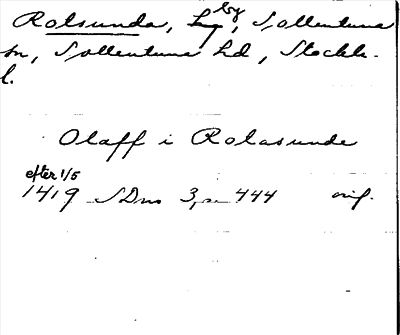 Rolsunda, by, Sollentuna
sn, Sollentuna hd, Stockh.
l.
Olaff i Rolasunde
efter 1/5
1419 SDns 3, s. 444 orig.